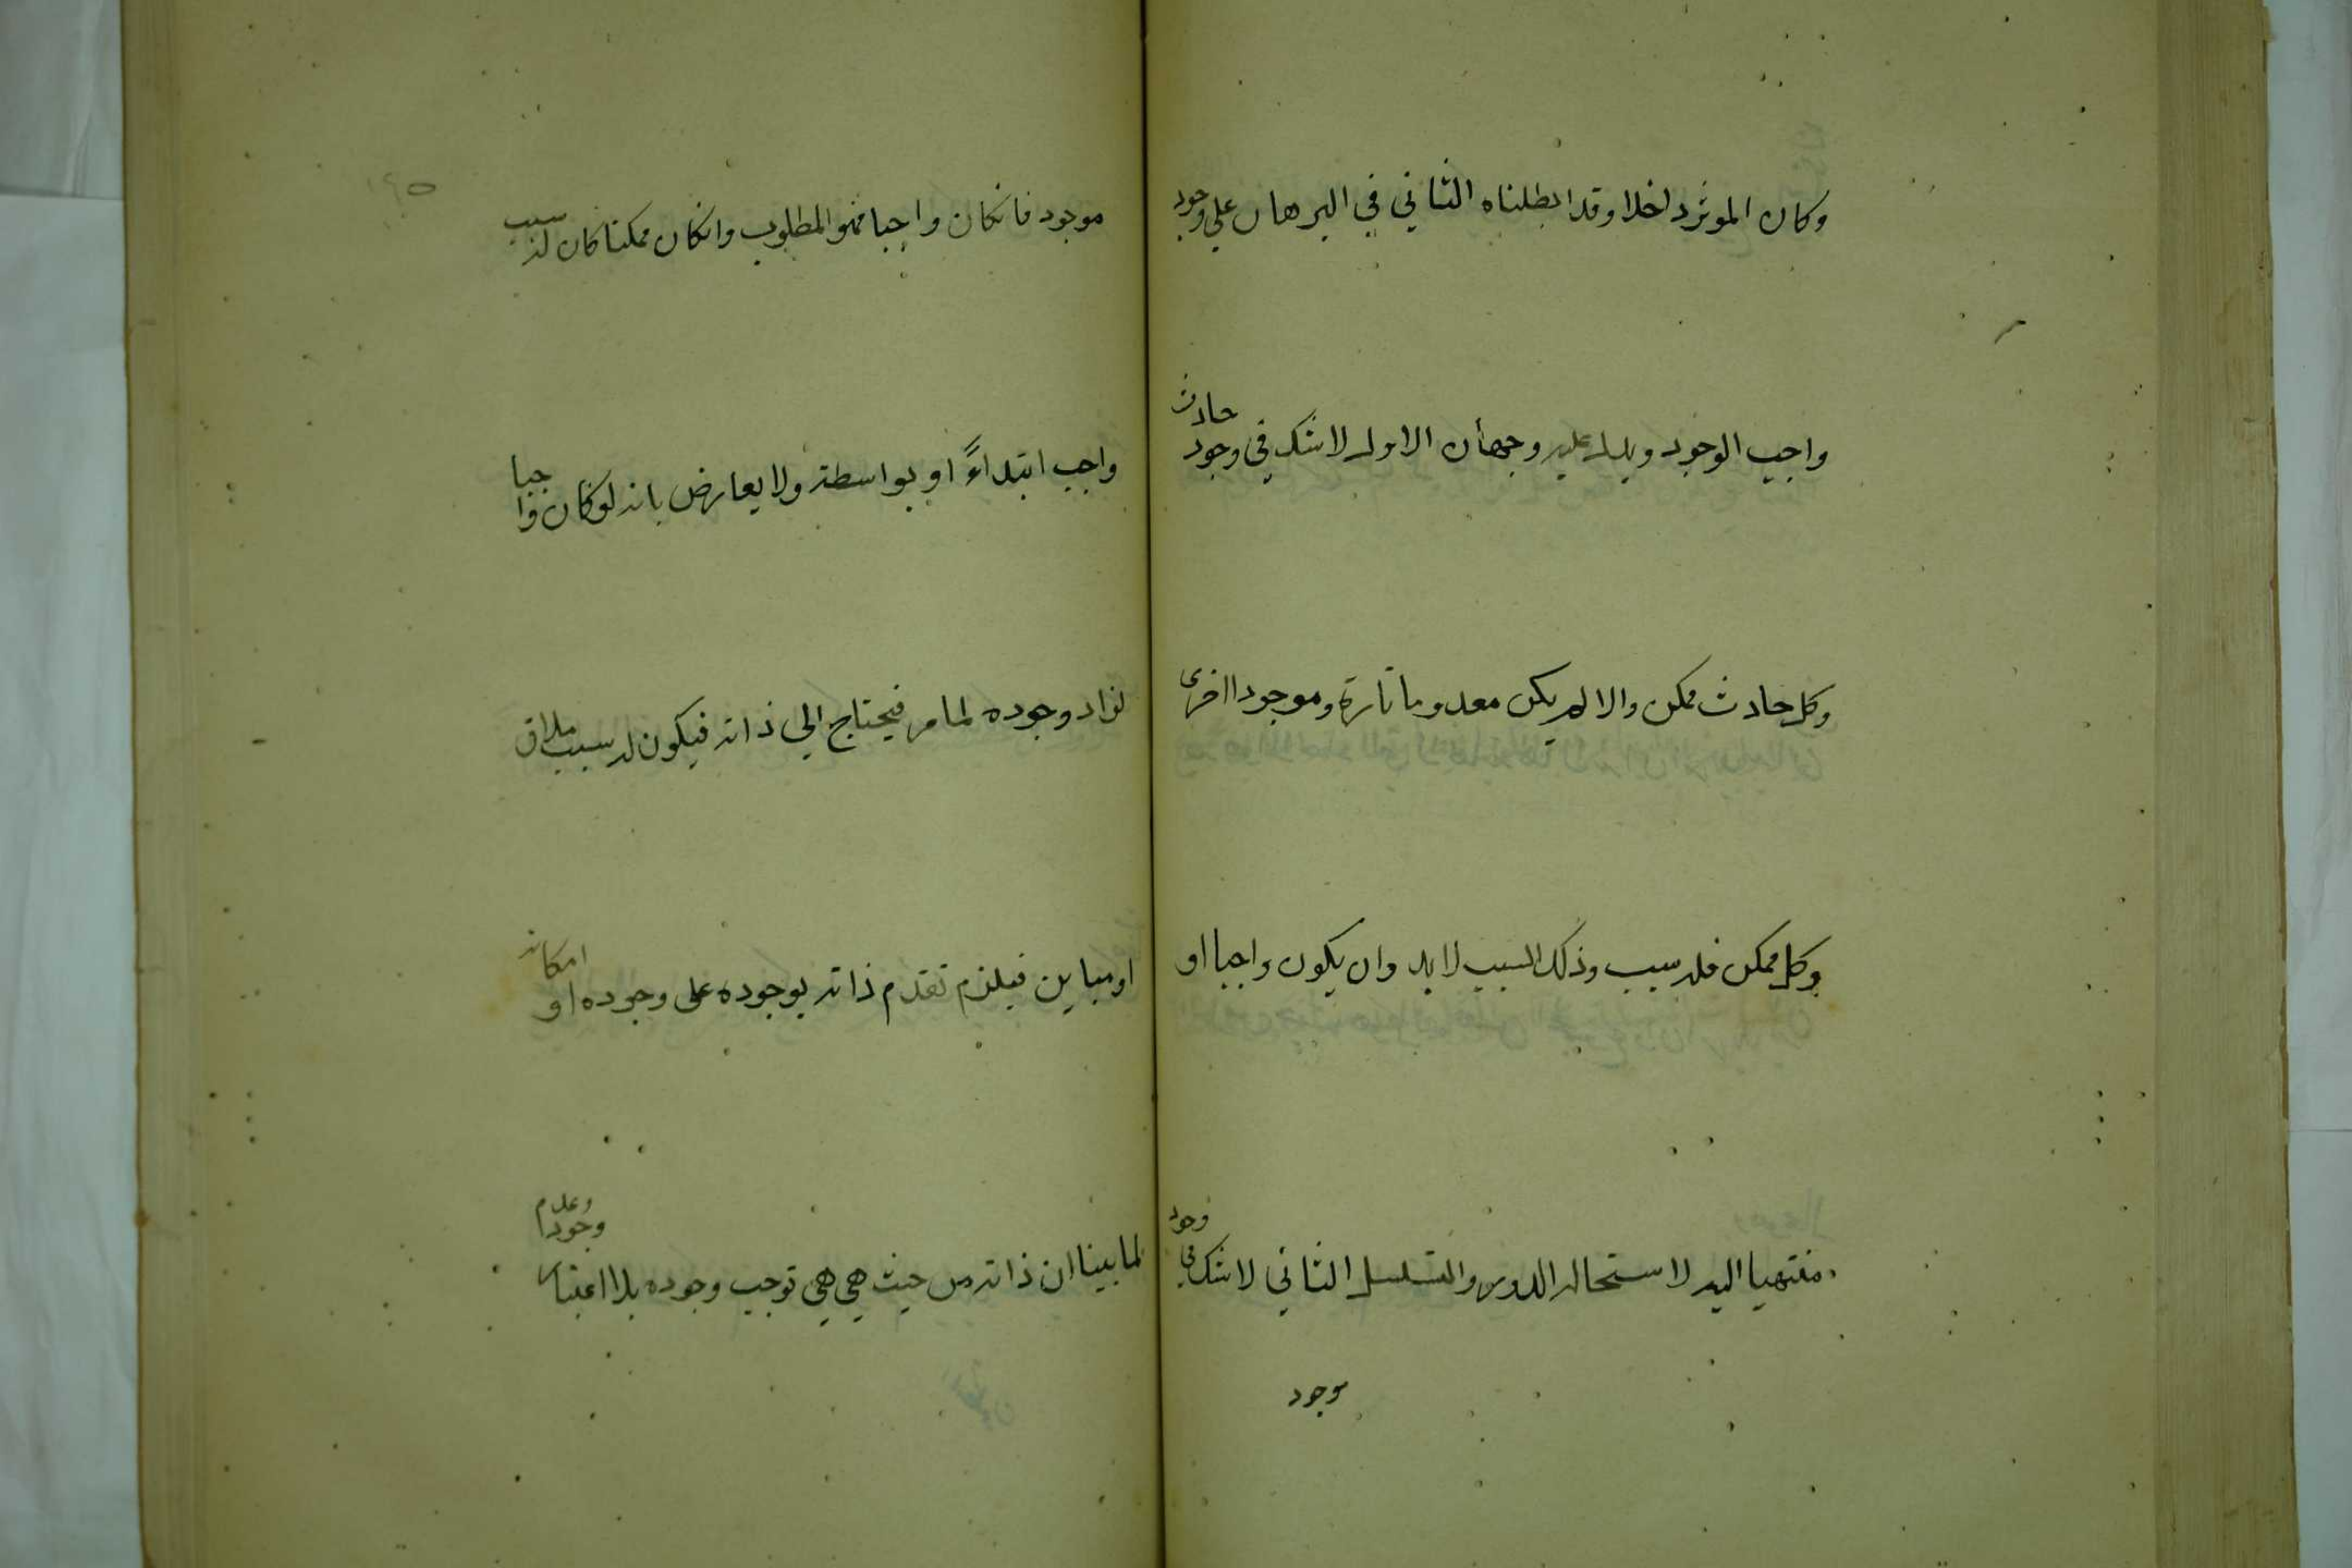 وكان الموثر داخلا وقد ابطلناه الثاني في البرهان علي وجود
واجب الوجود ويدل عليه وجهان الاول لا شك في وجود حادث
وكل حادث ممكن والا لم يكن معدوما تارة وموجودا اخرى
وكل ممكن فله سبب وذلك السبب لا بد وان يكون واجبا او
منتهيا اليه لاستحالة الدور والتسلسل الثاني لا شك في وجود
موجود
١٩٥
موجود فانكان واجبا فهو المطلوب وانكان ممكنا كان له سبب
واجب ابتداءً او بواسطة ولا يعارض بانه لو كان واجبا
لزاد وجوده لما مر فيحتاج الي ذاته فيكون له سبب ملاق
او مباين فيلزم تقدم ذاته بوجوده على وجوده او امكانه
لما بينا ان ذاته من حيث هي هي توجب وجوده بلا اعتبار وجود وعدم